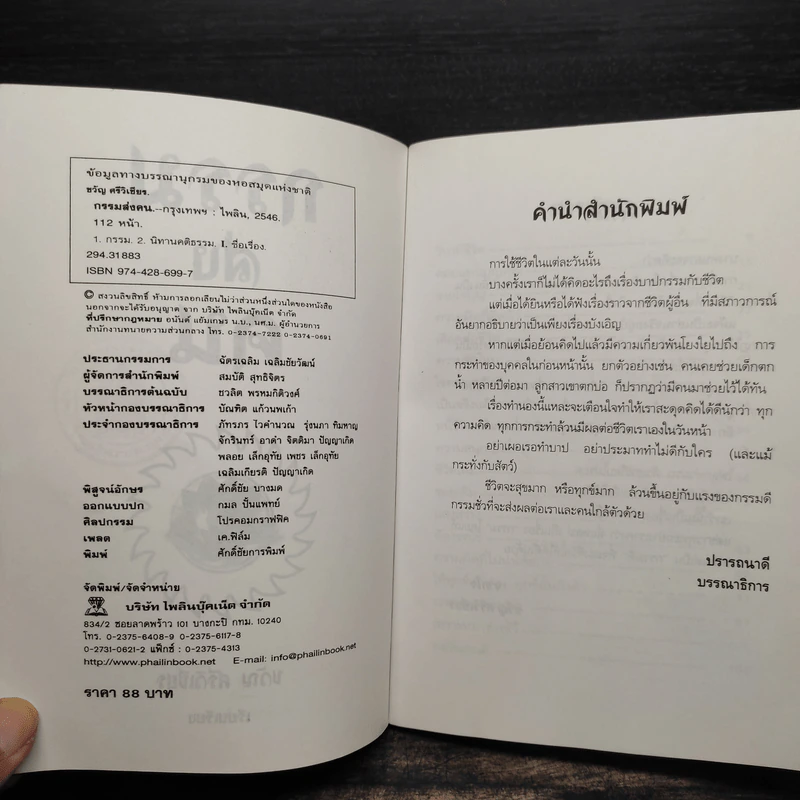 ข้อมูลทางบรรณานุกรมของหอสมุดแห่งชาติ
ขวัญ ศรีวิเชียร.
กรรมส่งคน.--กรุงเทพฯ : ไพลิน, 2546.
112 หน้า.
1. กรรม. 2. นิทานคติธรรม. I. ชื่อเรื่อง.
294.31883
ISBN 974-428-699-7
© สงวนลิขสิทธิ์ ห้ามการลอกเลียนไม่ว่าส่วนหนึ่งส่วนใดของหนังสือ
นอกจากจะได้รับอนุญาต จาก บริษัท ไพลินบุ๊คเน็ต จำกัด
ที่ปรึกษากฎหมาย อนันต์ แย้มเกษร น.บ., นศ.ม. ผู้อำนวยการ
สำนักงานทนายความส่วนกลาง โทร. 0-2374-7222 0-2374-0691
ประธานกรรมการ ฉัตรเฉลิม เฉลิมชัยวัฒน์
ผู้จัดการสำนักพิมพ์ สมบัติ สุทธิจิตร
บรรณาธิการต้นฉบับ ชวลิต พรหมกิติวงศ์
หัวหน้ากองบรรณาธิการ บัณฑิต แก้วนพเก้า
ประจำกองบรรณาธิการ ภัทรภร ไวคำนวณ รุ่งนภา ทิมหาญ
จักรินทร์ อาดำ จิตติมา ปัญญาเกิด
พลอย เล็กอุทัย เพชร เล็กอุทัย
เฉลิมเกียรติ ปัญญาเกิด
พิสูจน์อักษร ศักดิ์ชัย บางมด
ออกแบบปก กมล ปั้นแพทย์
ศิลปกรรม โปรคอมกราฟฟิค
เพลต เค.ฟิล์ม
พิมพ์ ศักดิ์ชัยการพิมพ์
จัดพิมพ์/จัดจำหน่าย
บริษัท ไพลินบุ๊คเน็ต จำกัด
834/2 ซอยลาดพร้าว 101 บางกะปิ กทม. 10240
โทร. 0-2375-6408-9 0-2375-6117-8
0-2731-0621-2 แฟ็กซ์ : 0-2375-4315
http://www.phailinbook.net E-mail: info@phailinbook.net
ราคา 88 บาท
คำนำสำนักพิมพ์
การใช้ชีวิตในแต่ละวันนั้น
บางครั้งเราก็ไม่ได้คิดอะไรถึงเรื่องบาปกรรมกับชีวิต
แต่เมื่อได้ยินหรือได้ฟังเรื่องราวจากชีวิตผู้อื่น ที่มีสภาวการณ์
อันยากอธิบายว่าเป็นเพียงเรื่องบังเอิญ
หากแต่เมื่อย้อนคิดไปแล้วมีความเกี่ยวพันโยงใยไปถึง การ
กระทำของบุคคลในก่อนหน้านั้น ยกตัวอย่างเช่น คนเคยช่วยเด็กตก
น้ำ หลายปีต่อมา ลูกสาวเขาตกบ่อ ก็ปรากฏว่ามีคนมาช่วยไว้ได้ทัน
เรื่องทำนองนี้แหละจะเตือนใจทำให้เราสะดุดคิดได้ดีนักว่า ทุก
ความคิด ทุกการกระทำล้วนมีผลต่อชีวิตเราเองในวันหน้า
อย่าเผอเรอทำบาป อย่าประมาททำไม่ดีกับใคร (และแม้
กระทั่งกับสัตว์)
ชีวิตจะสุขมาก หรือทุกข์มาก ล้วนขึ้นอยู่กับแรงของกรรมดี
กรรมชั่วที่จะส่งผลต่อเราและคนใกล้ตัวด้วย
ปรารถนาดี
บรรณาธิการ